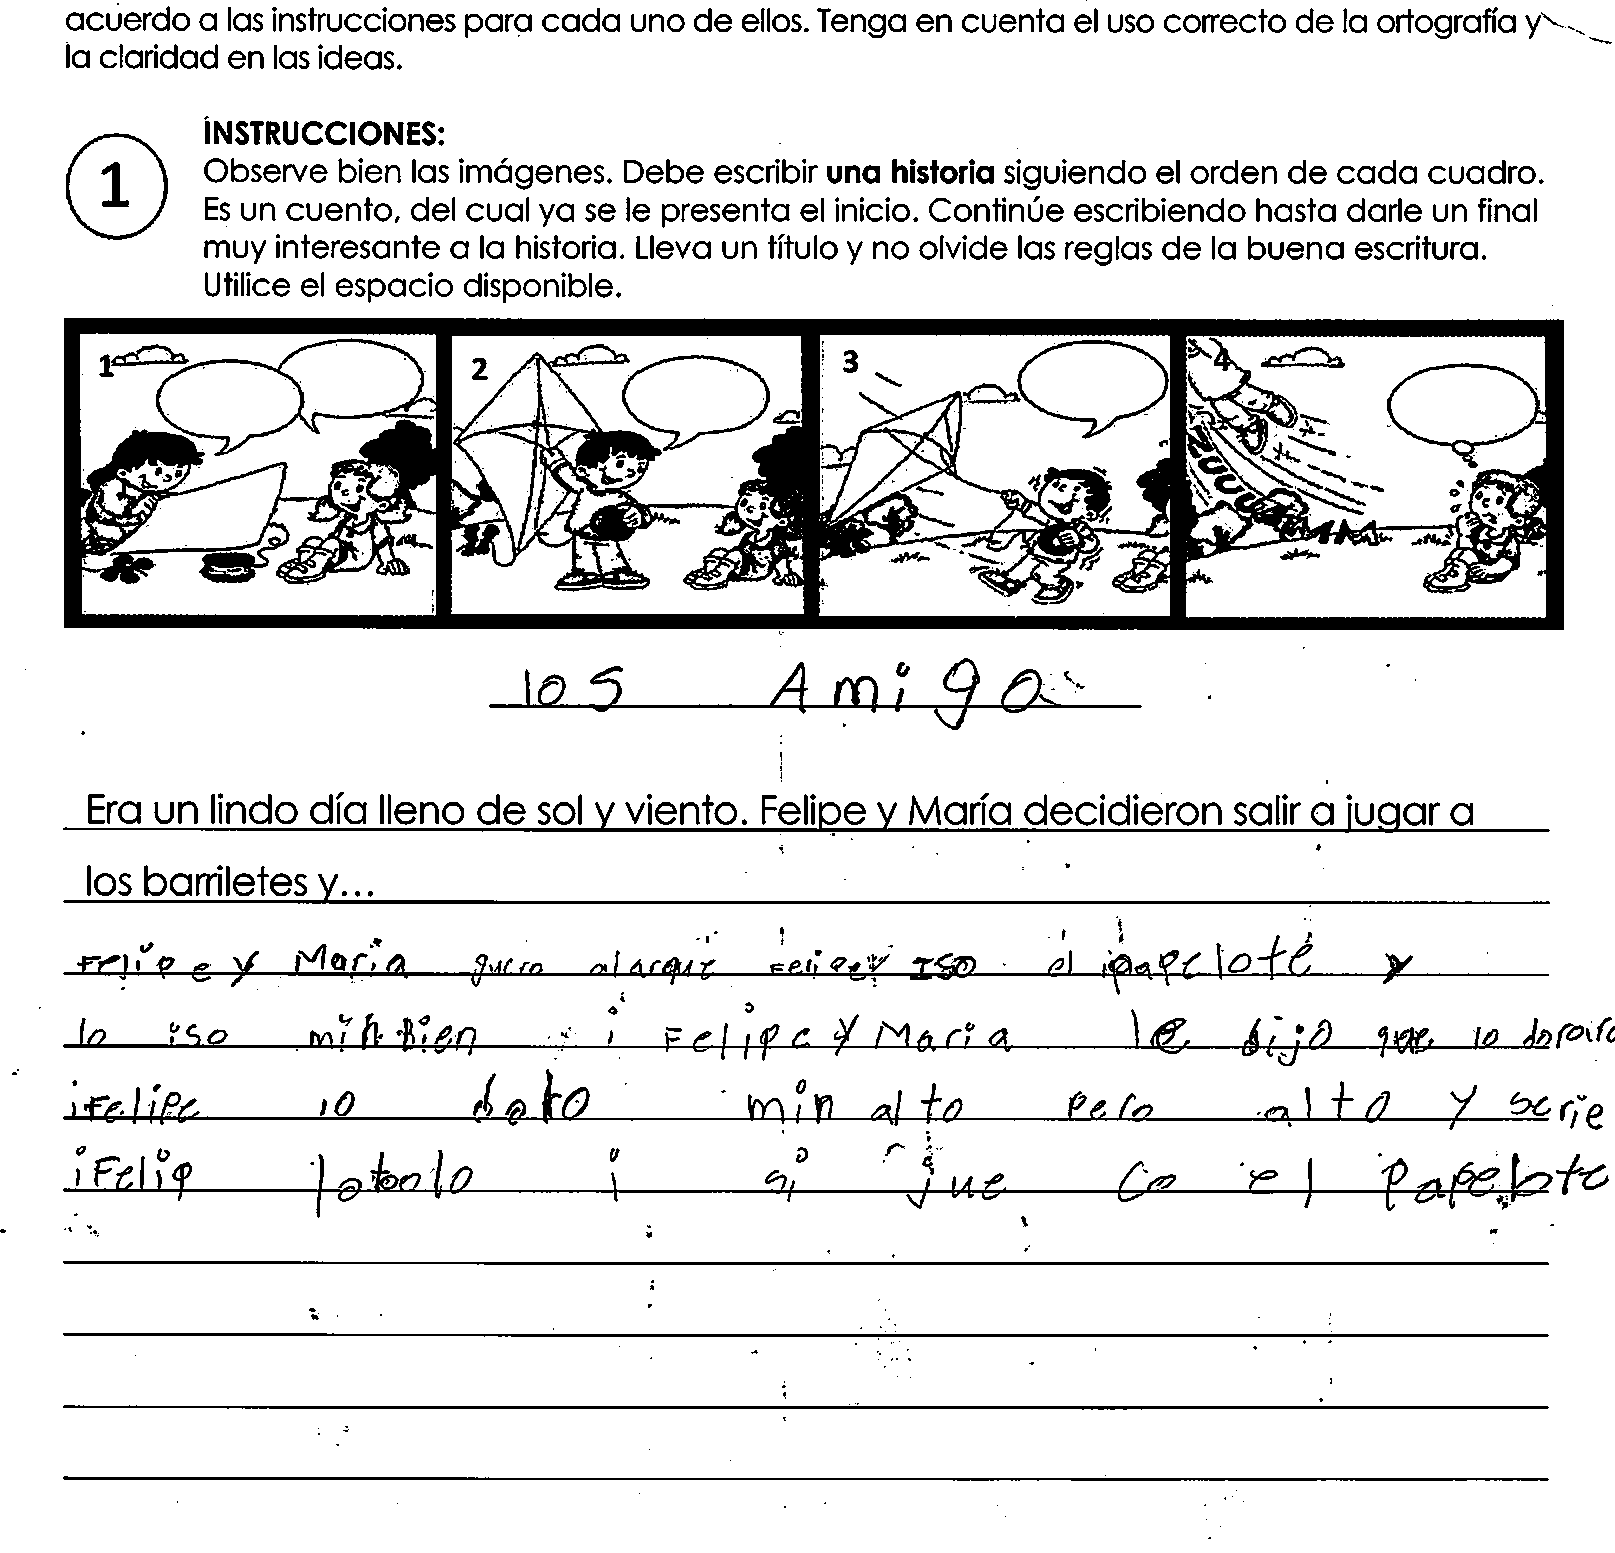 acuerdo a las instrucciones para cada uno de ellos. Tenga en cuenta el uso correcto de la ortografía y
la claridad en las ideas.
1
INSTRUCCIONES:
Observe bien las imágenes. Debe escribir una historia siguiendo el orden de cada cuadro.
Es un cuento, del cual ya se le presenta el inicio. Continúe escribiendo hasta darle un final
muy interesante a la historia. Lleva un título y no olvide las reglas de la buena escritura.
Utilice el espacio disponible.
1 2 3 4
ZUUUUMMM
los Amigo
Era un lindo día lleno de sol y viento. Felipe y María decidieron salir a jugar a
los barriletes y...
Felipe y Maria alarque Felipe y ISO el papelote y
lo iso min Bien i Felipe y Maria le dijo que lo
i Felipe lo min alto pero alto y
i Felip i si jue co el papelote